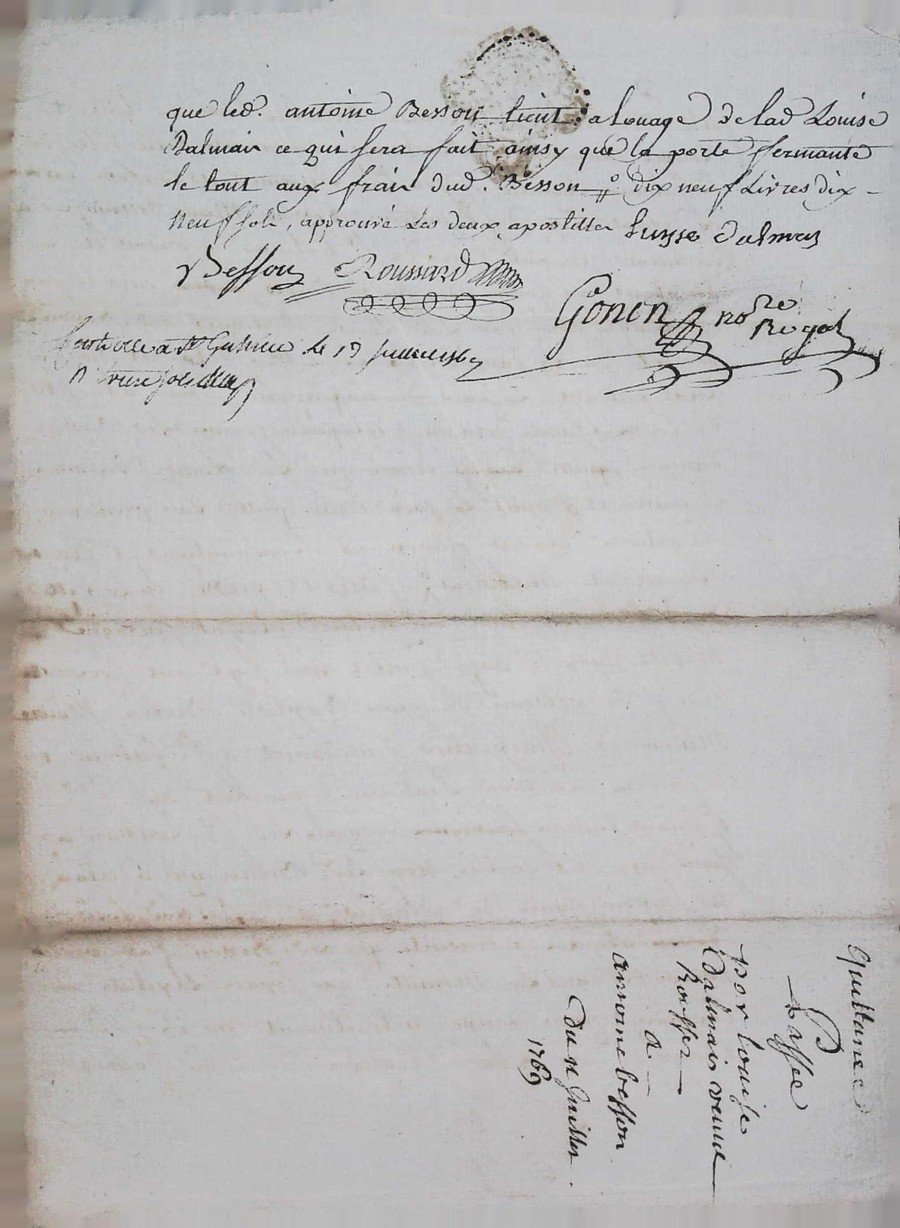 que led. antoine Besson tient a louage de lad Louise
Dalmais ce qui sera fait ainsy que la porte fermante
le tout aux frais dud. Besson dix neuf Livres dix-
neuf sols, approuvé les deux apostilles Luysse dalmais
Besson Roussard
Gonon nore
Royal
le 19
quittance
Passée
par louise
Dalmais veuve
a
antoine besson
du 11 Juillet
1769